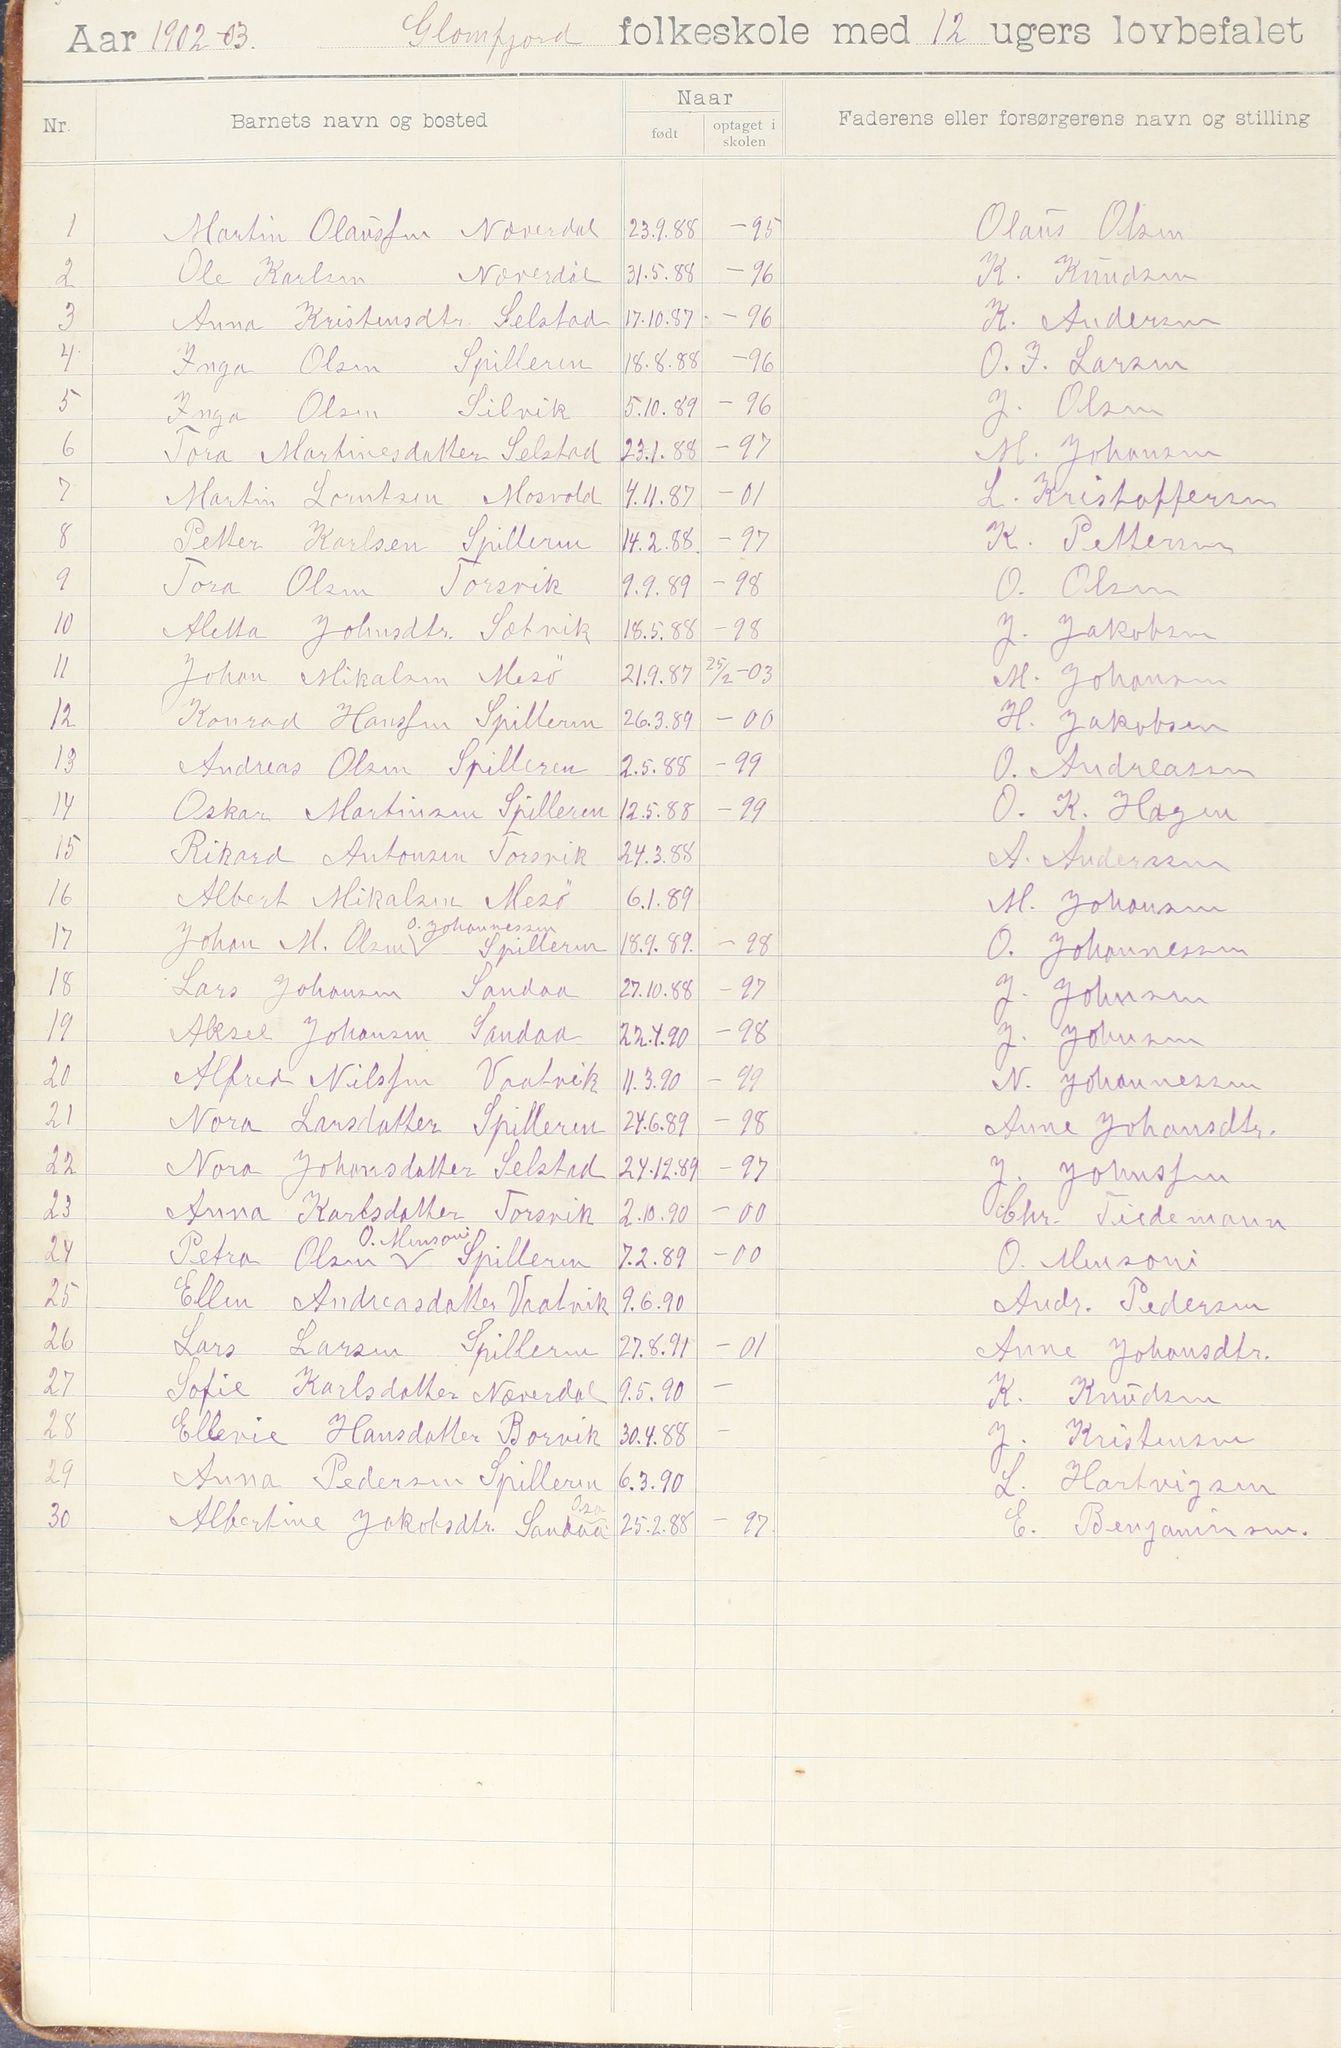 Aar 1902-03. Glomfjord folkeskole med 12 ugers lovbefalet
Nr. Barnets navn og bosted Naar Faderens eller forsørgerens navn og stilling
født optaget i skolen
1 Martin Olaussen Næverdal 23.9.88 -95 Olaus Olsen
2 Ole Karlsen Næverdal 31.5.88 -96 K. Knudsen
3 Anna Kristensdtr. Selstad 17.10.87 -96 K. Andersen
4 Inga Olsen Spilleren 18.8.88 -96 O. J. Larsen
5 Inga Olsen Silvik 5.10.89 -96 J. Olsen
6 Tora Martinesdatter Selstad 23.1.88 -97 M. Johansen
7 Martin Lorntsen Mosvold 4.11.87 -01 L. Kristoffersen
8 Petter Karlsen Spilleren 14.2.88. -97 K. Pettersen
9 Tora Olsen Torsvik 9.9.89 -98 O. Olsen
10 Aletta Johnsdtr. Sætvik 18.5.88 -98 J. Jakobsen
11 Johan Mikalsen Mesö 21.9.87 25/2-03 M. Johansen
12 Konrad Hanssen Spilleren 26.3.89 -00 H. Jakobsen
13 Andreas Olsen Spilleren 2.5.88 -99 O. Andreassen
14 Oskar Martinsen Spilleren 12.5.88 -99 O. K. Hagen
15 Rikard Antonsen Torsvik 24.3.88 A. Anderssen
16 Albert Mikalsen Mesö 6.1.89 M. Johansen
O. Johannessen
17 Johan M. Olsen Spilleren 18.9.89. -98 O. Johannessen
18 Lars Johansen Sandaa 27.10.88 -97 J. Johnsen
19 Aksel Johansen Sandaa 22.4.90 -98 J. Johnsen
20 Alfred Nilssen Vaatvik 11.3.90 -99 N. Johannessen
21 Nora Larsdatter Spilleren 24.6.89 -98 Anne Johansdtr.
22 Nora Johansdatter Selstad 24.12.89 -97 J. Johnssen
23 Anna Karlsdatter Torsvik 2.10.90 -00 Chr. Tiedemann
O. Mensoni
24 Petra Olsen Spilleren 7.2.89 -00 O. Mensoni
25 Ellen Andreasdatter Vaatvik 9.6.90 Andr. Pedersen
26 Lars Larsen Spilleren 27.8.91 -01 Anne Johansdtr.
27 Sofie Karlsdatter Næverdal 9.5.90 - K. Knudsen
28 Ellevie Hansdatter Borvik 30.4.88 - J. Kristensen
29 Anna Pedersen Spilleren 6.3.90 L. Hartvigsen
30 Albertine Jakobsdtr. Sandaa 25.2.88 -97. E. Benjaminsen.